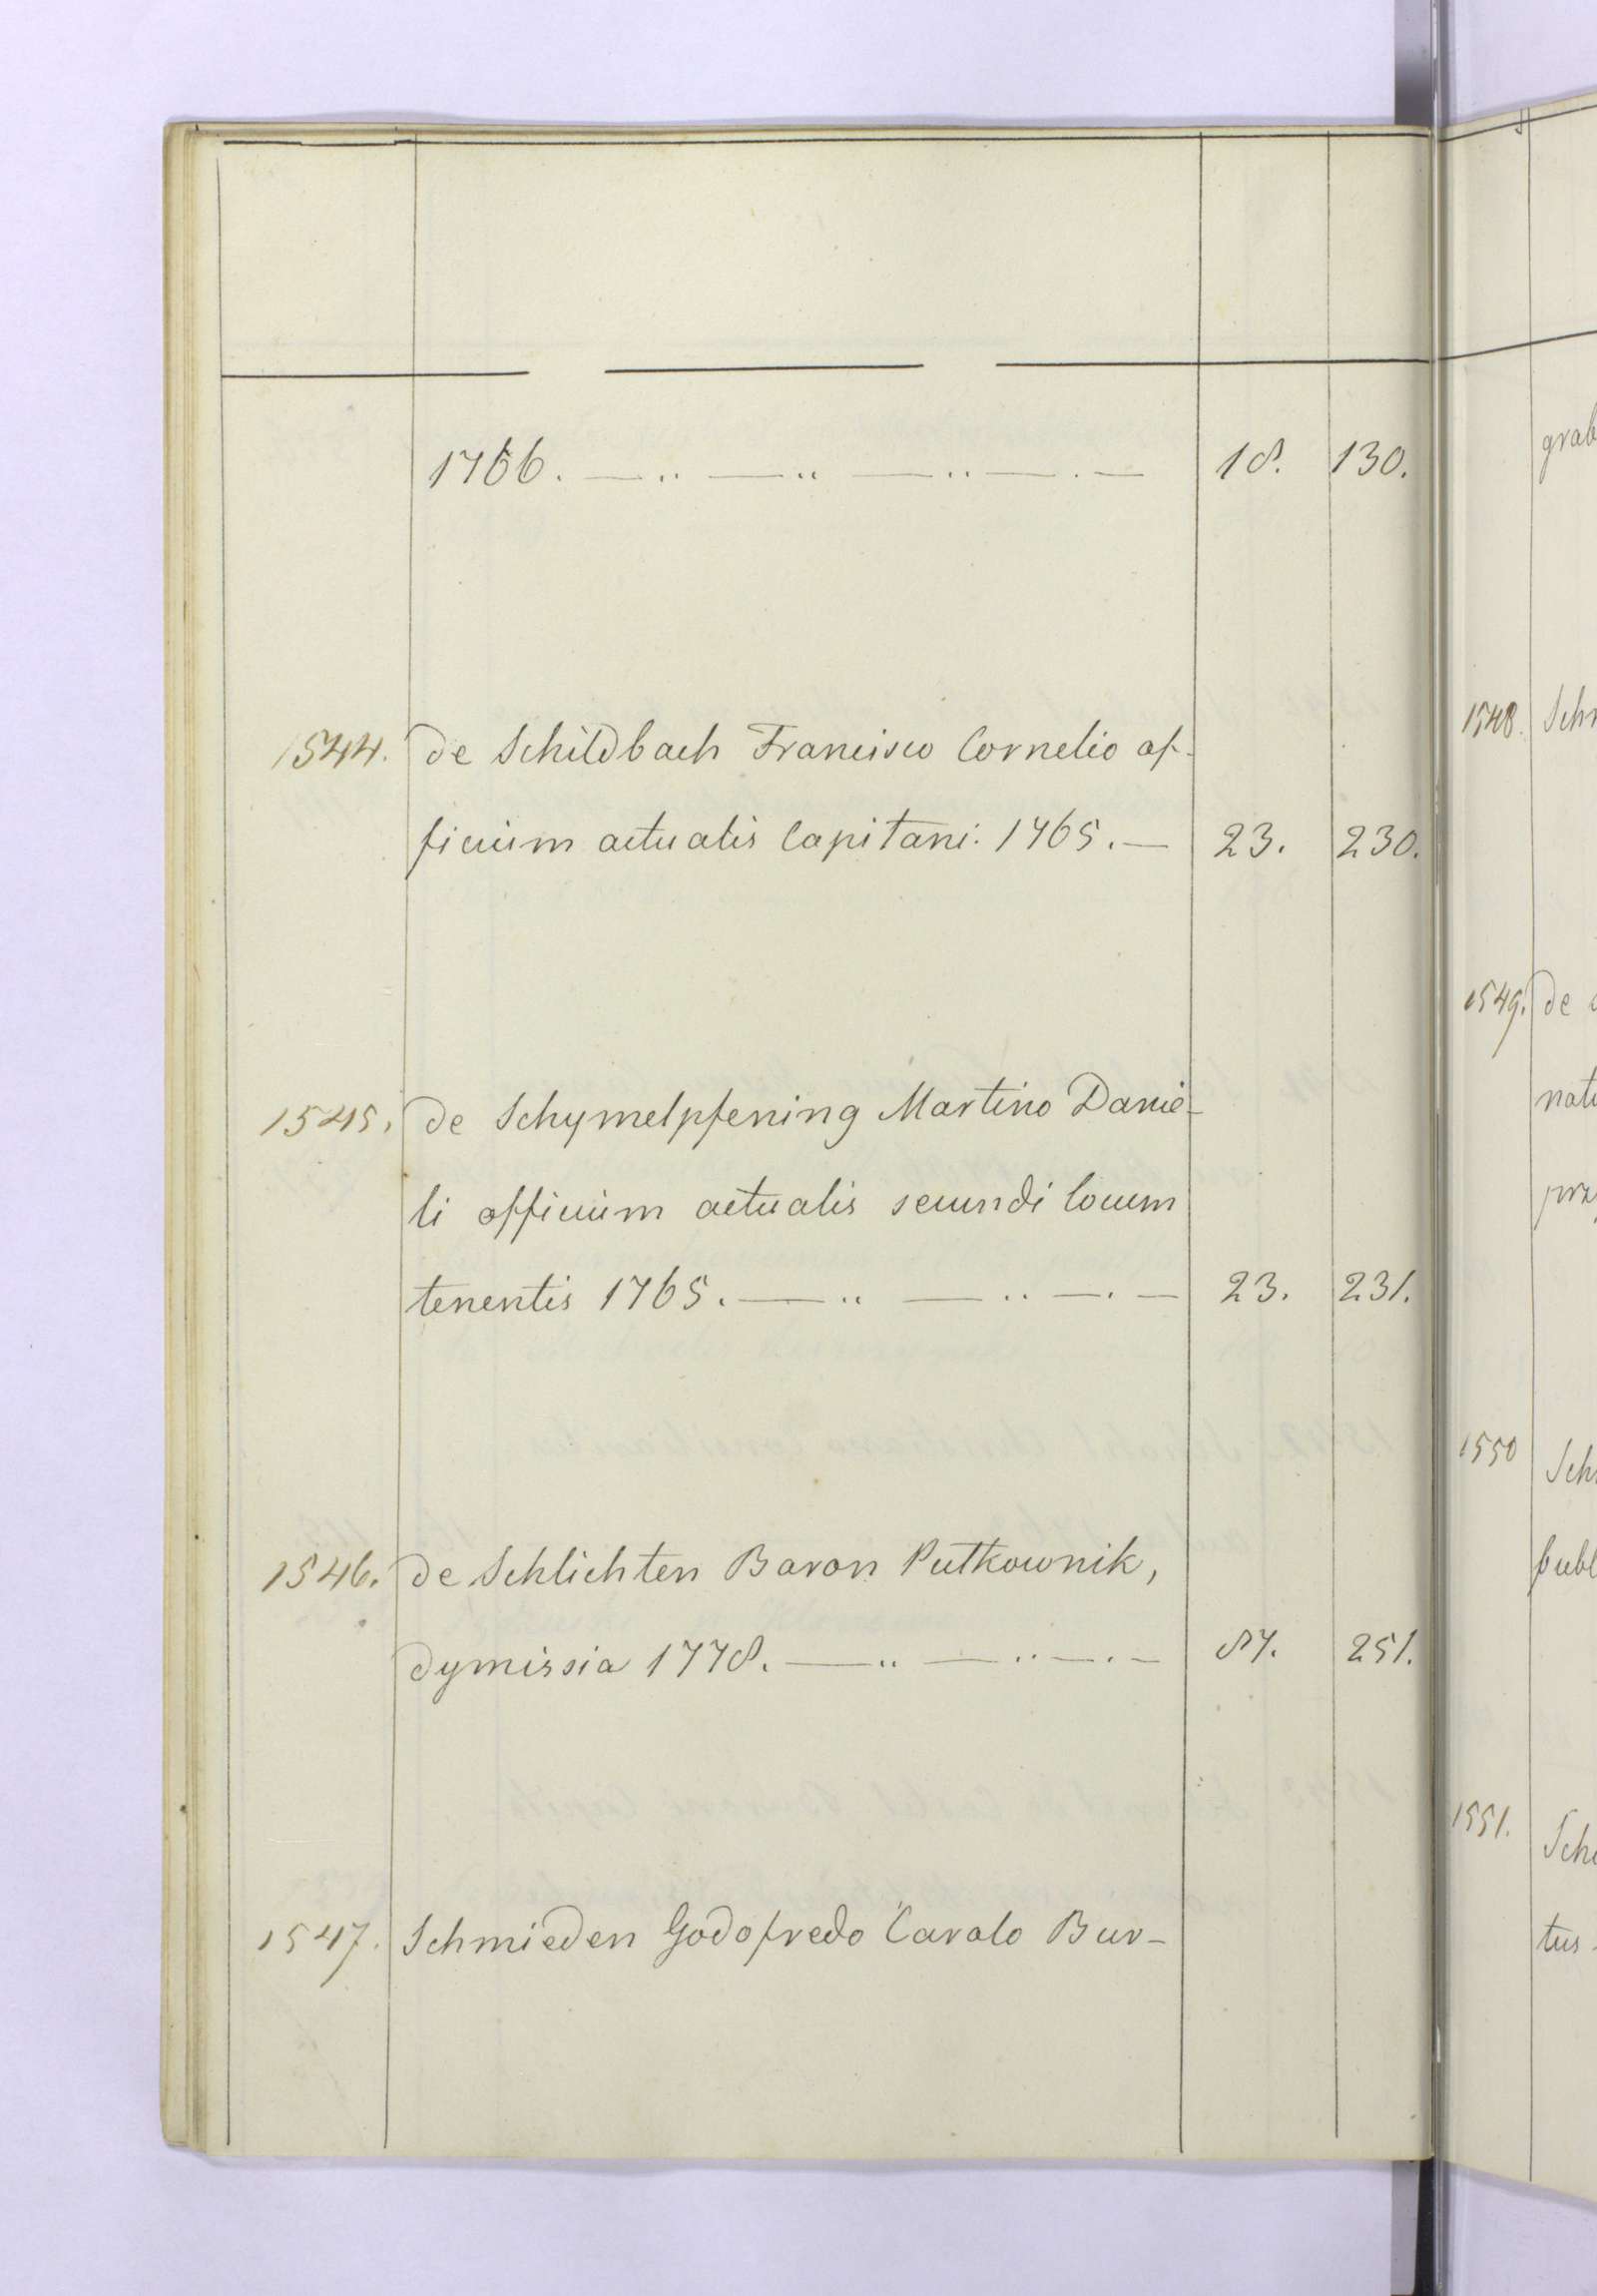 1766. — .. — .. — .. — . — 18. 130.
1544. de Schildbach Francisco Cornelio of-
ficium actualis Capitani. 1765. — 23. 230.
1545. de Schymelpfening Martino Danie-
li officium actualis secundi locum
tenentis 1765. — .. — .. — . — 23. 231.
1546. de Schlichten Baron Pułkownik,
dymissia 1778. — .. — .. — . — 87. 251.
1547. Schmieden Godofredo Carolo Bur-
grab
1548.
1549. de
natu
1550 Sch
publ
1551. Sch
tus